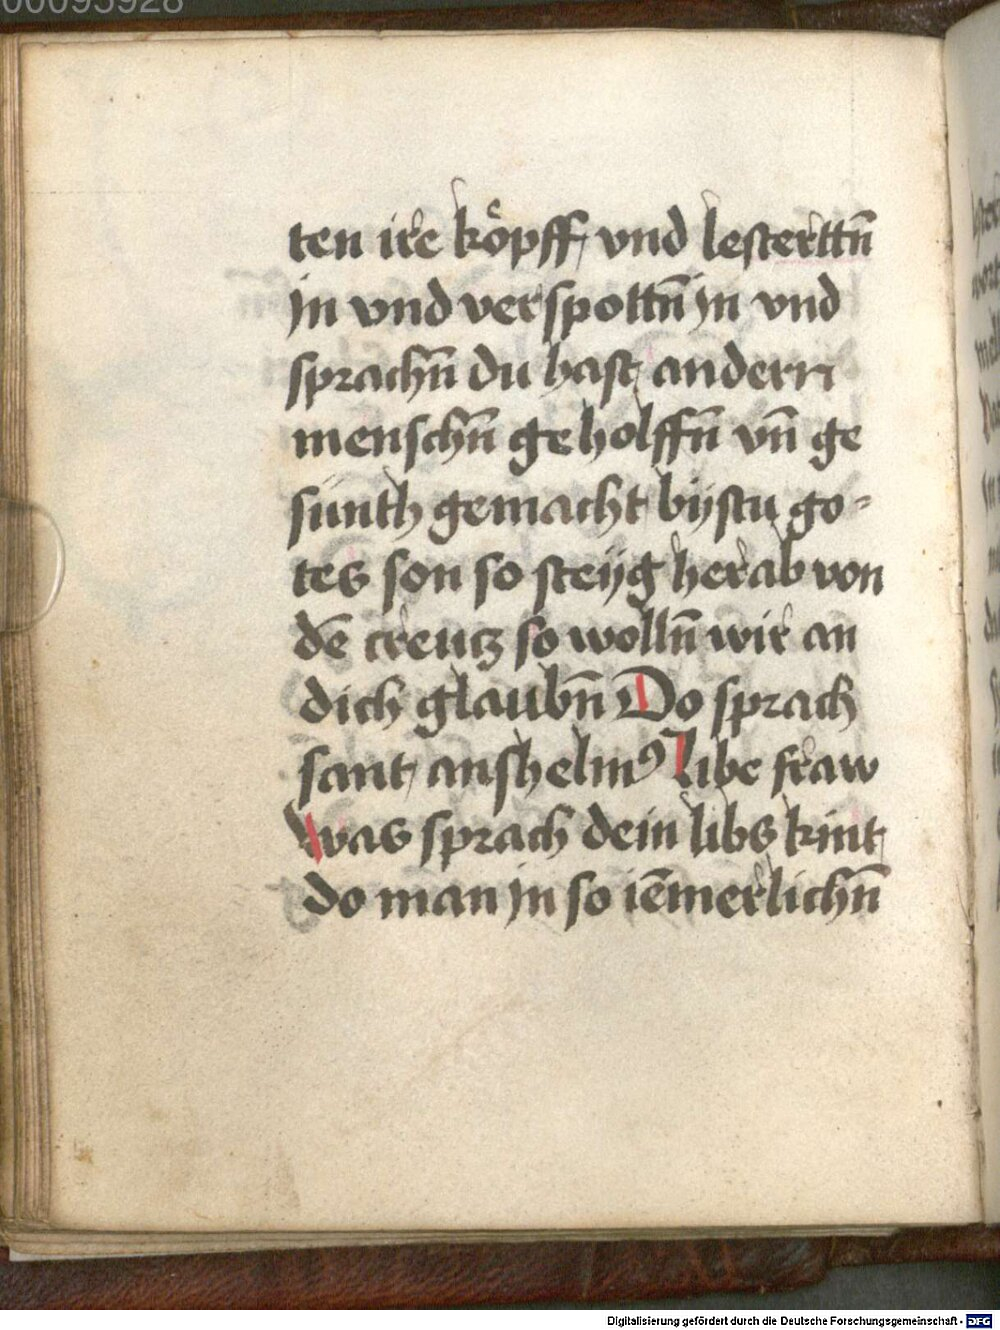 00095928
ten ire köpff vnd lesterttn̄
jn vnd verspottn̄ jn vnd
sprachn̄ du hast andern
menschn̄ geholffn̄ vn̄ ge
sunth gemacht bijstu go-
tes son so steijg herab von
dē creutz so wolln̄ wir an
dich glaubn̄ Do sprach
sant anshelmꝰ libe fraw
was sprach dein libs kint
do man jn so iēmerlichn̄
Digitalisierung gefördert durch die Deutsche Forschungsgemeinschaft - DFG